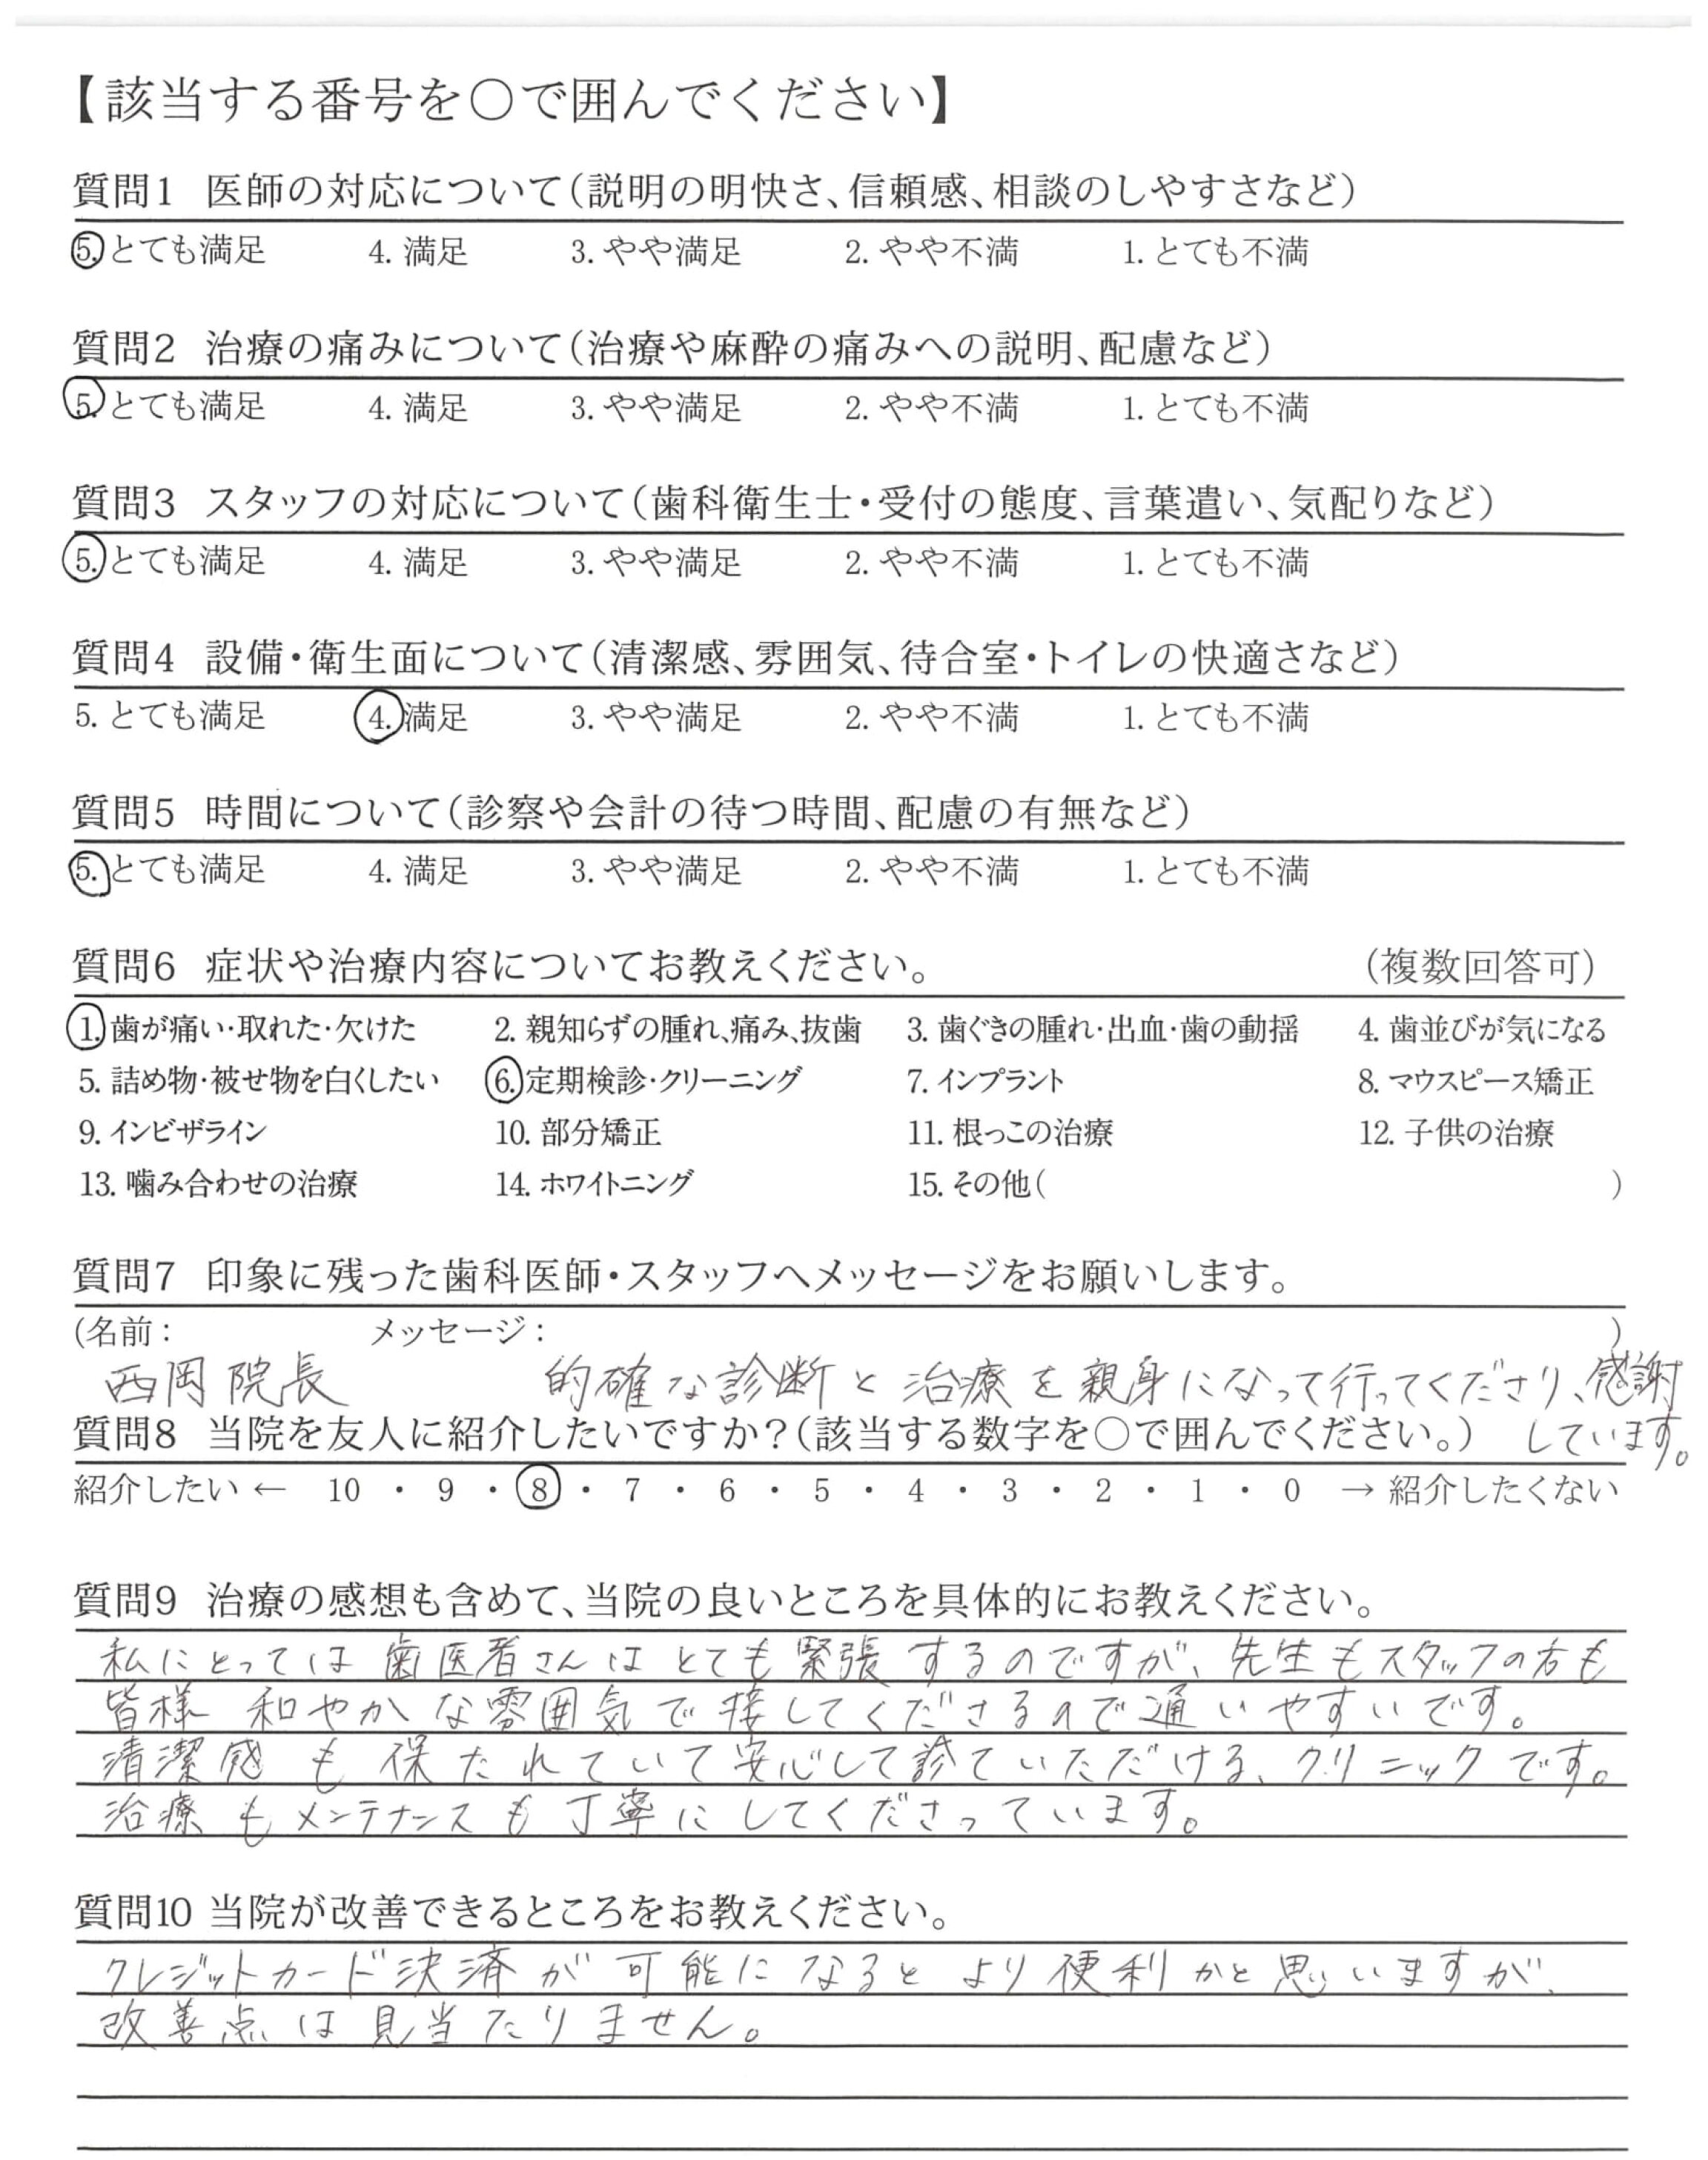 【該当する番号を○で囲んでください】
質問1 医師の対応について(説明の明快さ、信頼感、相談のしやすさなど)
5. とても満足 4. 満足 3. やや満足 2. やや不満 1. とても不満
質問2 治療の痛みについて(治療や麻酔の痛みへの説明、配慮など)
5. とても満足 4. 満足 3. やや満足 2. やや不満 1. とても不満
質問3 スタッフの対応について(歯科衛生士・受付の態度、言葉遣い、気配りなど)
5. とても満足 4. 満足 3. やや満足 2. やや不満 1. とても不満
質問4 設備・衛生面について(清潔感、雰囲気、待合室・トイレの快適さなど)
5. とても満足 4. 満足 3. やや満足 2. やや不満 1. とても不満
質問5 時間について(診察や会計の待つ時間、配慮の有無など)
5. とても満足 4. 満足 3. やや満足 2. やや不満 1. とても不満
質問6 症状や治療内容についてお教えください。 (複数回答可)
1. 歯が痛い・取れた・欠けた 2. 親知らずの腫れ、痛み、抜歯 3. 歯ぐきの腫れ・出血・歯の動揺 4. 歯並びが気になる
5. 詰め物・被せ物を白くしたい 6. 定期検診・クリーニング 7. インプラント 8. マウスピース矯正
9. インビザライン 10. 部分矯正 11. 根っこの治療 12. 子供の治療
13. 噛み合わせの治療 14. ホワイトニング 15. その他( )
質問7 印象に残った歯科医師・スタッフへメッセージをお願いします。
(名前: メッセージ: )
西岡院長 的確な診断と治療を親身になって行ってくださり、感謝
しています。
質問8 当院を友人に紹介したいですか?(該当する数字を○で囲んでください。)
紹介したい ← 10 ・ 9 ・ 8 ・ 7 ・ 6 ・ 5 ・ 4 ・ 3 ・ 2 ・ 1 ・ 0 → 紹介したくない
質問9 治療の感想も含めて、当院の良いところを具体的にお教えください。
私にとっては歯医者さんはとても緊張するのですが、先生もスタッフの方も
皆様 和やかな雰囲気で接してくださるので通いやすいです。
清潔感も保たれていて安心して診ていただける、クリニックです。
治療もメンテナンスも丁寧にしてくださっています。
質問10 当院が改善できるところをお教えください。
クレジットカード決済が可能になるとより便利かと思いますが、
改善点は見当たりません。